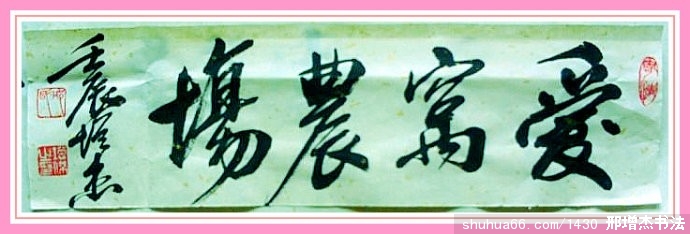 愛窩農場
壬辰增杰
shuhua66.com/1430 邢增杰书法